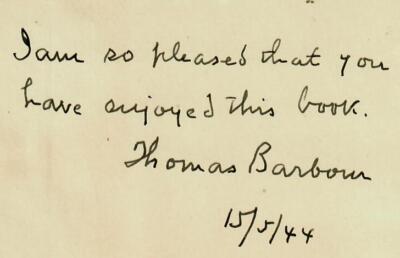 I am so pleased that you
have enjoyed this book.
Thomas Barbour
15/5/44